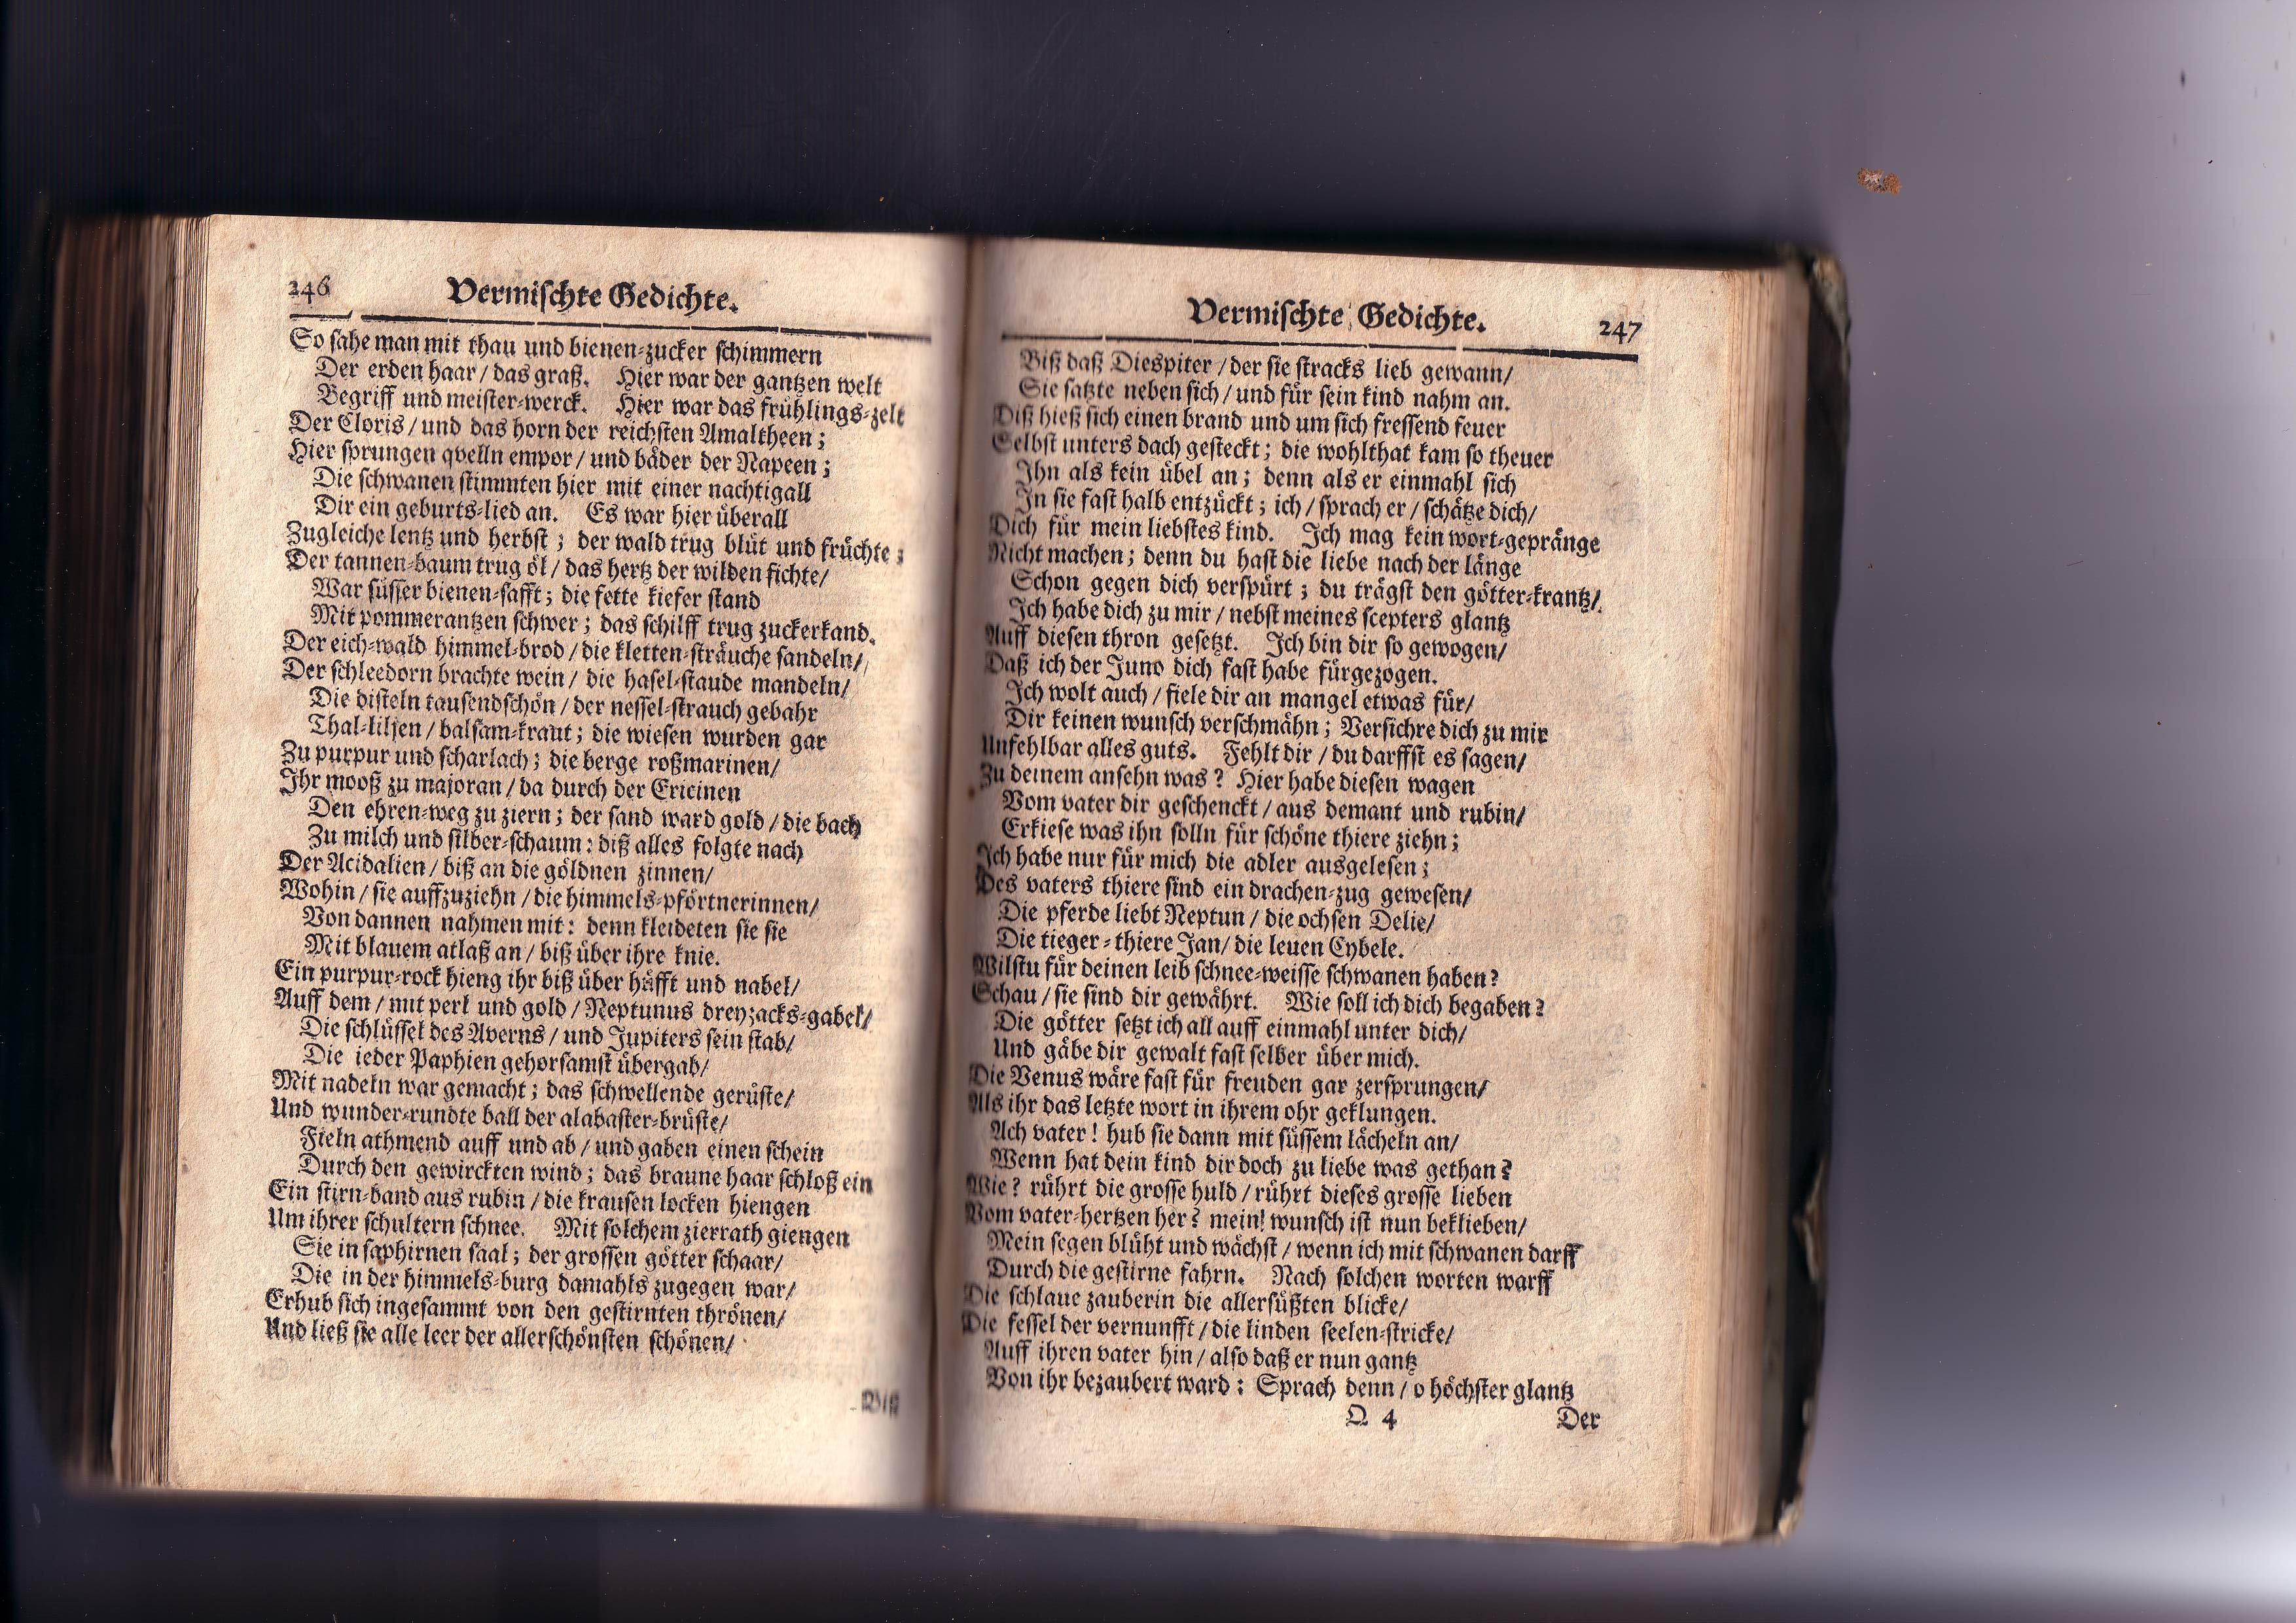 246 Vermischte Gedichte.
So sahe man mit thau und bienen-zucker schimmern
Der erden haar / das graß. Hier war der gantzen welt
Begriff und meister-werck. Hier war das frühlings-zelt
Der Cloris / und das horn der reichsten Amaltheen;
Hier sprungen qvelln empor / und bäder der Napeen;
Die schwanen stimmten hier mit einer nachtigall
Dir ein geburts-lied an. Es war hier überall
Zugleiche lentz und herbst; der wald trug blüt und früchte;
Der tannen-baum trug öl / das hertz der wilden fichte/
War süsser bienen-safft; die fette kiefer stand
Mit pommerantzen schwer; das schilff trug zuckerkand.
Der eich-wald himmel-brod / die kletten-sträuche sandeln/
Der schleedorn brachte wein / die hasel-staude mandeln/
Die disteln tausendschön / der nessel-strauch gebahr
Thal-liljen / balsam-kraut; die wiesen wurden gar
Zu purpur und scharlach; die berge roßmarinen/
Ihr mooß zu majoran / da durch der Ericinen
Den ehren-weg zu ziern; der sand ward gold / die bach
Zu milch und silber-schaum: diß alles folgte nach
Der Acidalien / biß an die göldnen zinnen/
Wohin / sie auffzuziehn / die himmels-pförtnerinnen/
Von dannen nahmen mit: denn kleideten sie sie
Mit blauem atlaß an / biß über ihre knie.
Ein purpur-rock hieng ihr biß über häfft und nabel/
Auff dem / mit perl und gold / Neptunus dreyzacks-gabel/
Die schlüssel des Averns / und Jupiters sein stab/
Die ieder Paphien gehorsamst übergab/
Mit nadeln war gemacht; das schwellende gerüste/
Und wunder-rundte ball der alabaster-brüste/
Fieln athmend auff und ab / und gaben einen schein
Durch den gewirckten wind; das braune haar schloß ein
Ein stirn-band aus rubin / die krausen locken hiengen
Um ihrer schultern schnee. Mit solchem zierrath giengen
Sie in saphirnen saal; der grossen götter schaar/
Die in der himmels-burg damahls zugegen war/
Erhub sich ingesammt von den gestirnten thrönen/
Und ließ sie alle leer der allerschönsten schönen/
Biß
Vermischte Gedichte. 247
Biß daß Diespiter / der sie stracks lieb gewann/
Sie satzte neben sich / und für sein kind nahm an.
Diß hieß sich einen brand und um sich fressend feuer
Selbst unters dach gesteckt; die wohlthat kam so theuer
Ihn als kein übel an; denn als er einmahl sich
In sie fast halb entzückt; ich / sprach er / schätze dich/
Dich für mein liebstes kind. Ich mag kein wort-gepränge
Nicht machen; denn du hast die liebe nach der länge
Schon gegen dich verspürt; du trägst den götter-krantz/
Ich habe dich zu mir / nebst meines scepters glantz
Auff diesen thron gesetzt. Ich bin dir so gewogen/
Daß ich der Juno dich fast habe fürgezogen.
Ich wolt auch / fiele dir an mangel etwas für/
Dir keinen wunsch verschmähn; Versichre dich zu mir
Unfehlbar alles guts. Fehlt dir / du darffst es sagen/
Zu deinem ansehn was? Hier habe diesen wagen
Vom vater dir geschenckt / aus demant und rubin/
Erkiese was ihn solln für schöne thiere ziehn;
Ich habe nur für mich die adler ausgelesen;
Des vaters thiere sind ein drachen-zug gewesen/
Die pferde liebt Neptun / die ochsen Delie/
Die tieger-thiere Jan / die leuen Cybele.
Wilstu für deinen leib schnee-weisse schwanen haben?
Schau / sie sind dir gewährt. Wie soll ich dich begaben?
Die götter setzt ich all auff einmahl unter dich/
Und gäbe dir gewalt fast selber über mich.
Die Venus wäre fast für freuden gar zersprungen/
Als ihr das letzte wort in ihrem ohr geklungen.
Ach vater! hub sie dann mit süssem lächeln an/
Wenn hat dein kind dir doch zu liebe was gethan?
Wie? rührt die grosse huld / rührt dieses grosse lieben
Vom vater-hertzen her? mein! wunsch ist nun beklieben/
Mein segen blüht und wächst / wenn ich mit schwanen darff
Durch die gestirne fahrn. Nach solchen worten warff
Die schlaue zauberin die allersüßten blicke/
Die fessel der vernunfft / die linden seelen-stricke/
Auff ihren vater hin / also daß er nun gantz
Von ihr bezaubert ward: Sprach denn / o höchster glantz
Q 4 Der